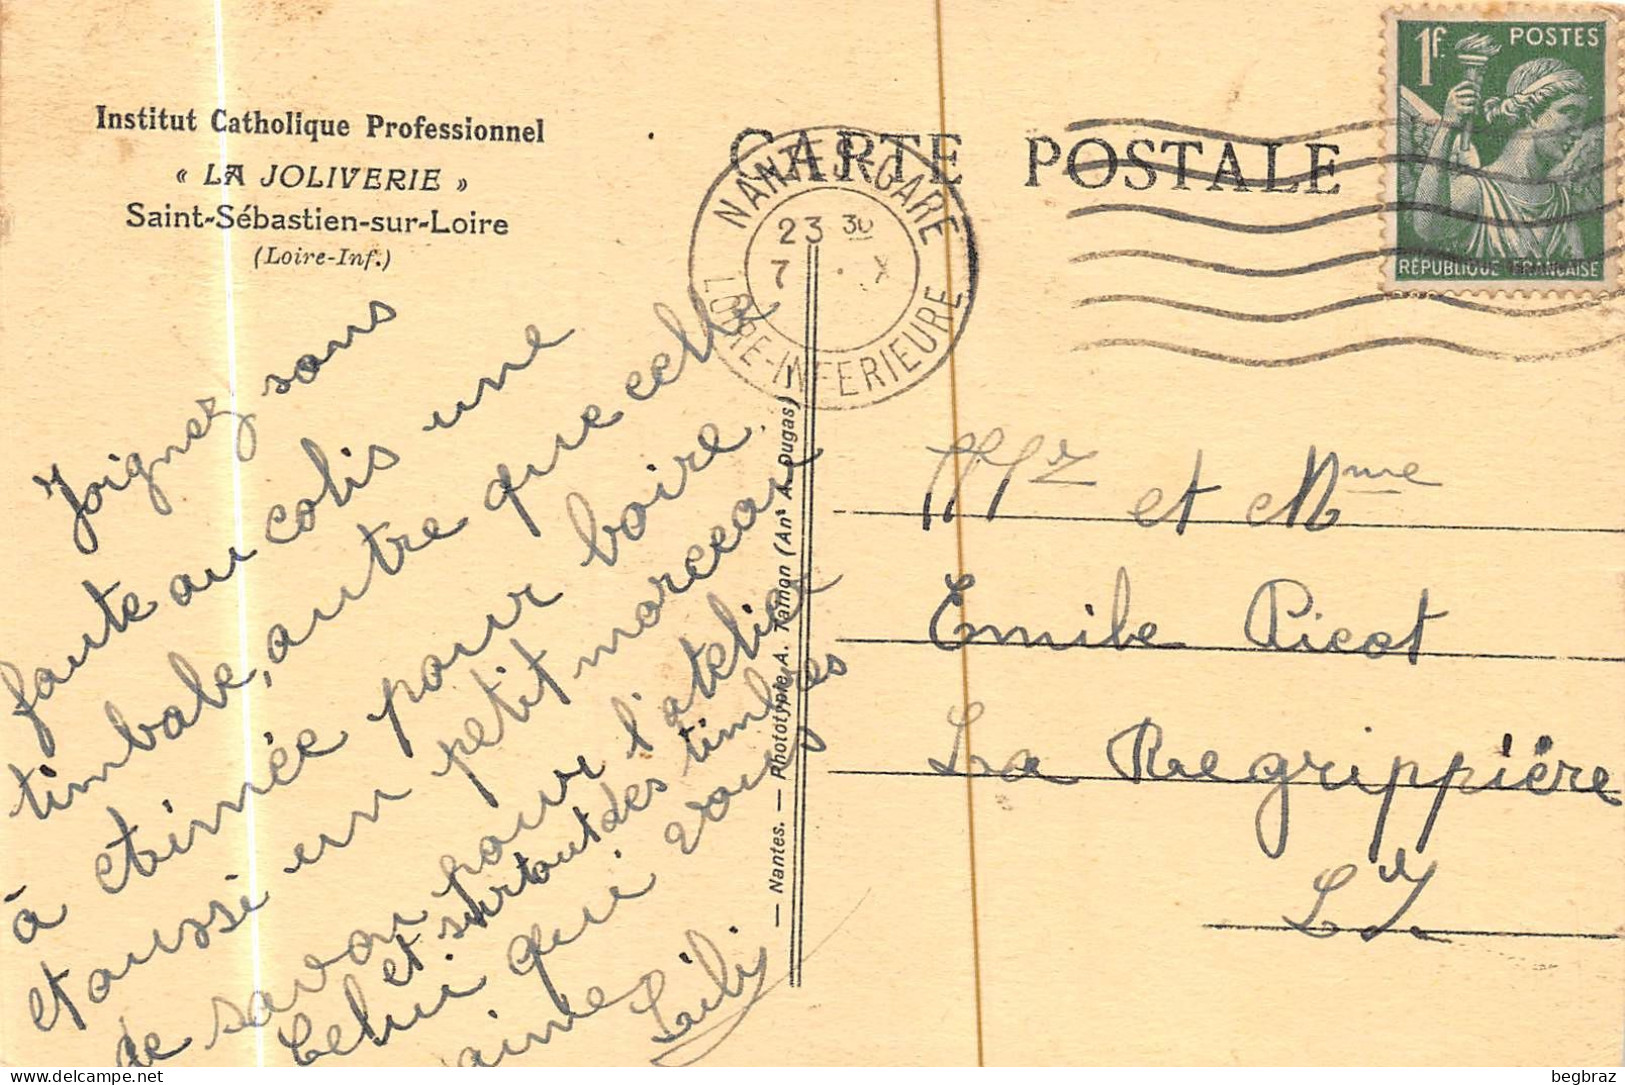 Institut Catholique Professionnel
« LA JOLIVERIE »
Saint-Sébastien-sur-Loire
(Loire-Inf.)
CARTE POSTALE
NANTES-GARE
23 30
7 X
LOIRE-INFERIEURE
1f. POSTES
RÉPUBLIQUE FRANÇAISE
Joignez sans
faute au colis une
timbale, autre que celle
à etimée pour boire.
et aussi un petit morceau
de savon pour l'atelier
et surtout des timbres
Celui qui vous
aime Lili
— Nantes. — Phototypie A. Tamon (Anc A. Dugas)
Mr et Mme
Emile Picot
La Regrippière
L I
begbraz